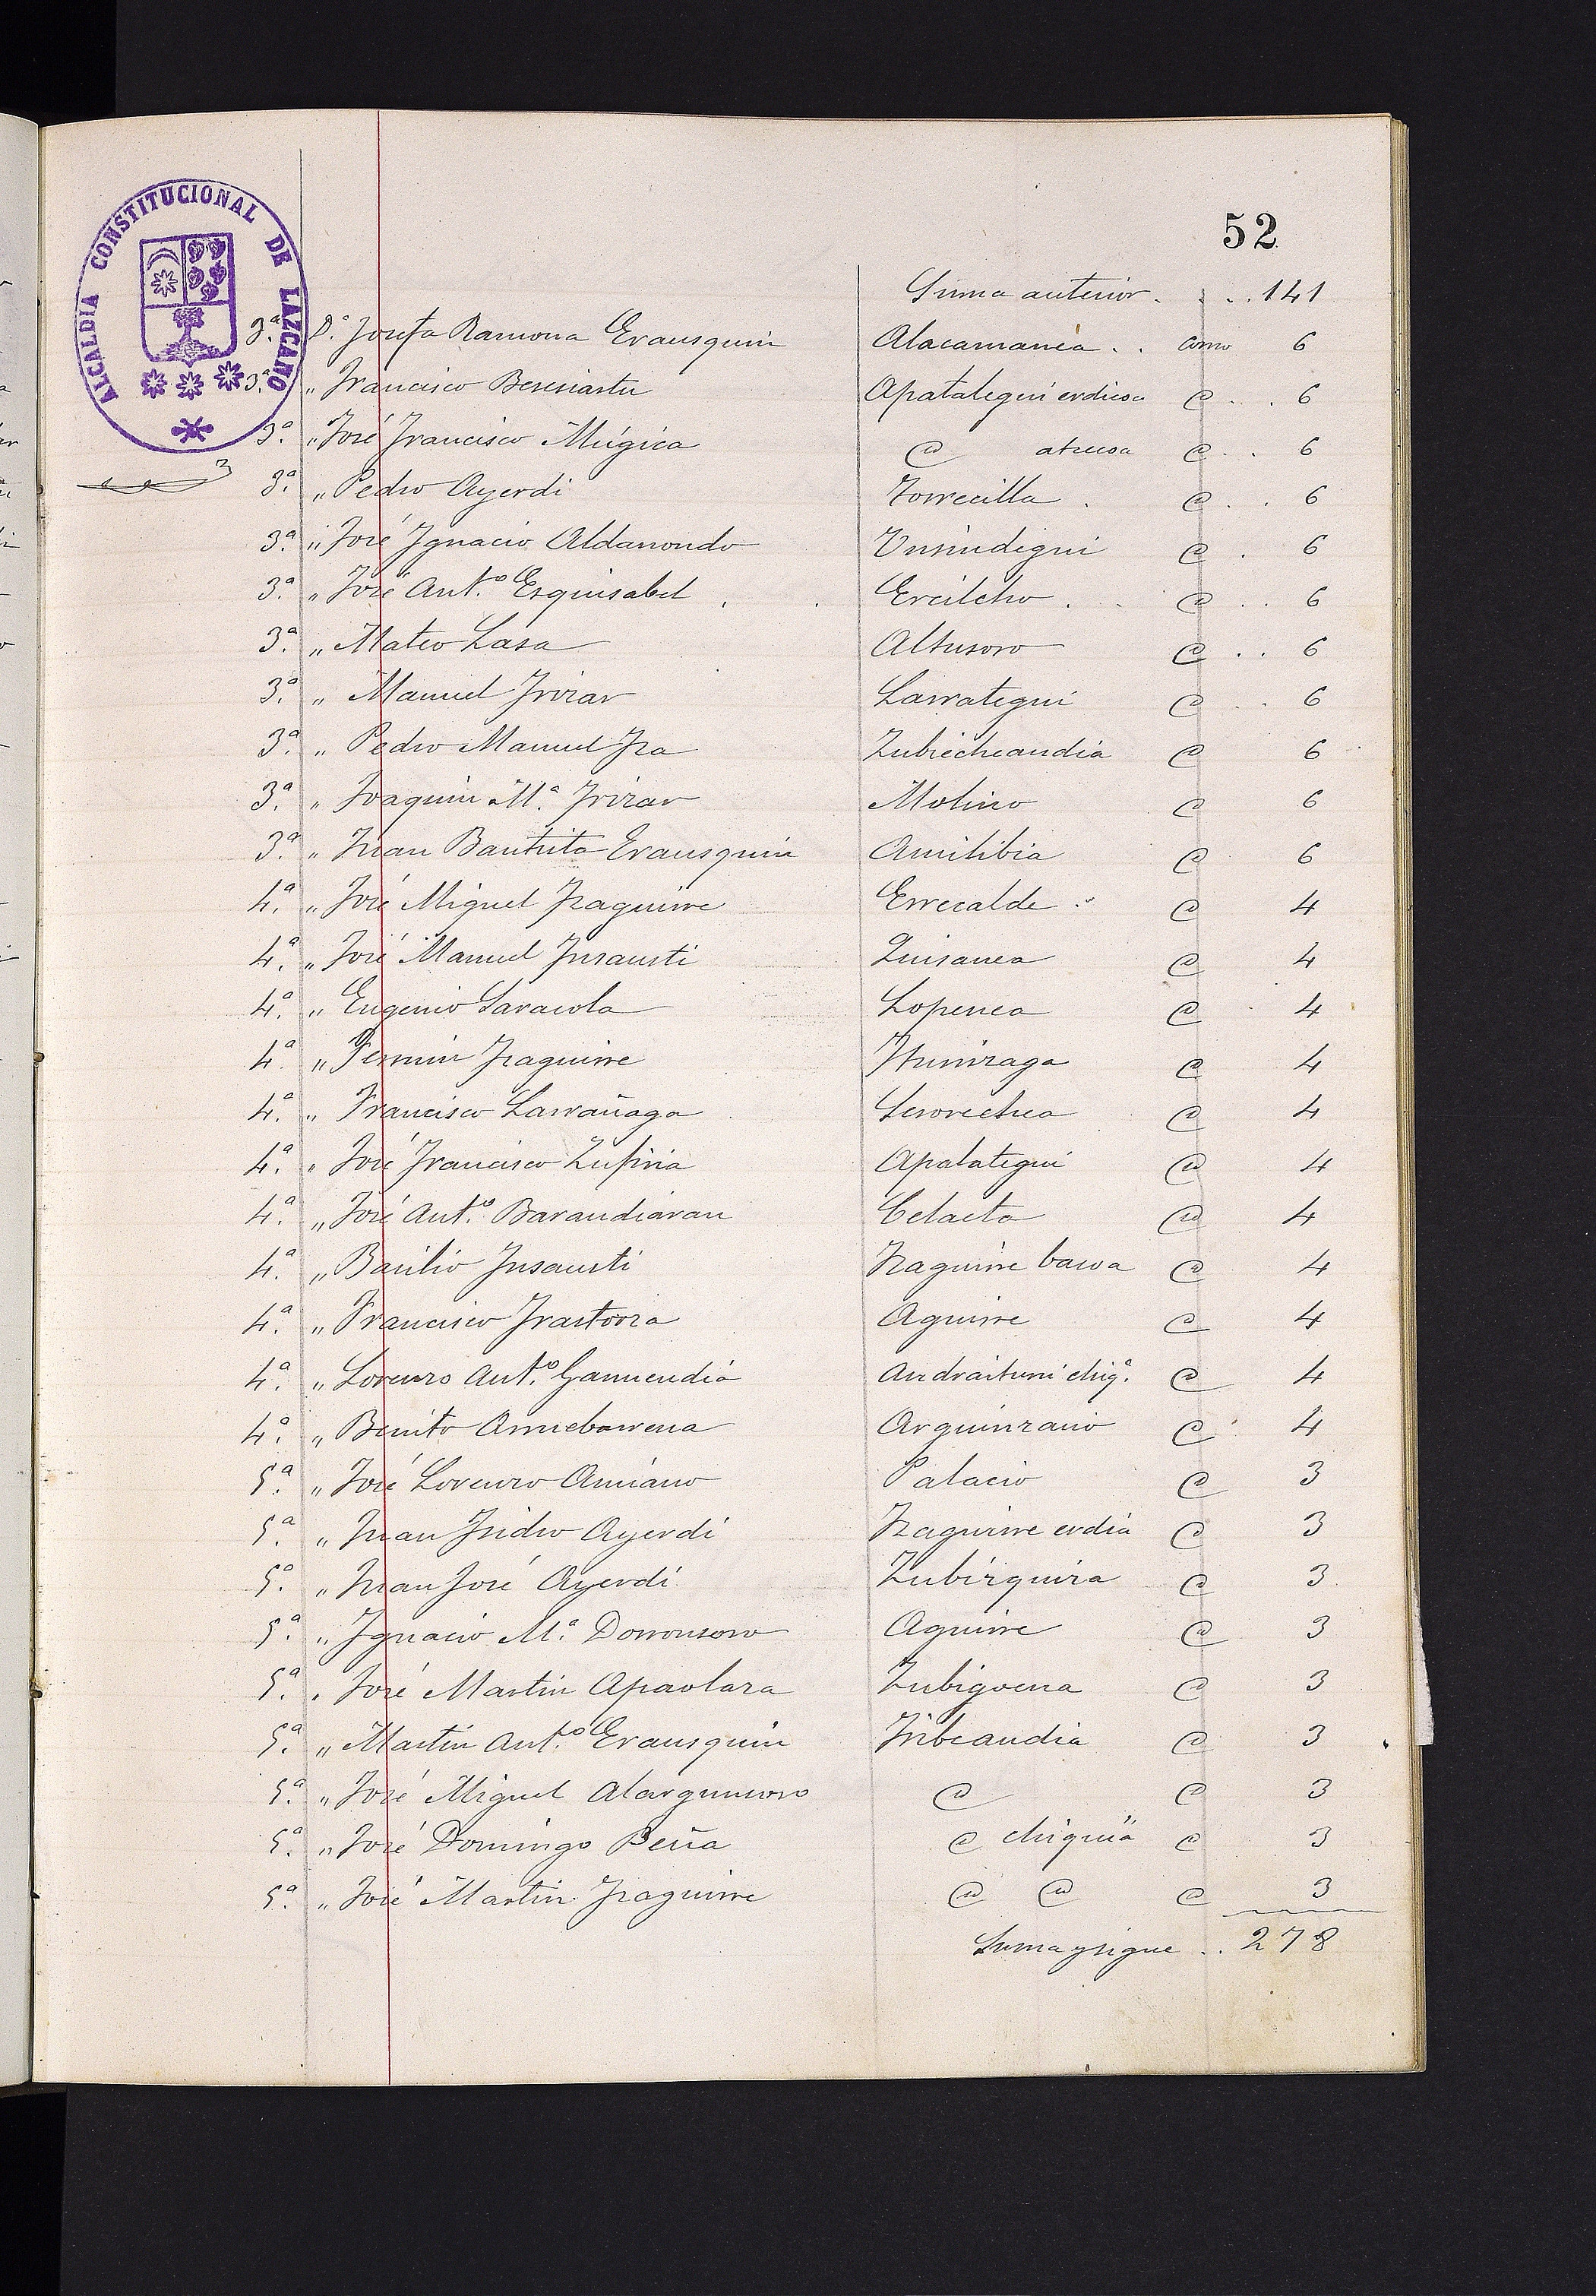 52
ALCALDIA CONSTITUCIONAL DE LAZCANO
Suma anterior . . . 141
3.ª D.ª Josefa Ramona Erausquin Alacamanéa . . como 6
3.ª " Francisco Beresiartu Apatategui erdicoa @ . . 6
3.ª " José Francisco Múgica @ atzecoa @ . . 6
3.ª " Pedro Ayerdi Torrecilla . @ . . 6
3.ª " José Ygnacio Aldanondo Unsindegui @ . 6
3.ª " José Ant.º Esquisabel . . Ercilcho . . @ . . 6
3.ª " Mateo Lasa Altusoro @ . . 6
3.ª " Manuel Yrizar Larrategui @ . . 6
3.ª " Pedro Manuel Yza Zubiecheaundia @ 6
3.ª " Joaquin M.ª Yrizar Molino @ 6
3.ª " Juan Bautista Erausquin Amilibia @ 6
4.ª " José Miguel Yzaguirre Errecalde . @ 4
4.ª " José Manuel Ynsausti Luisanea @ 4
4.ª " Eugenio Saracola Lopenea @ 4
4.ª " Fermin Yzaguirre Yturrizaga @ 4
4.ª " Francisco Larrañaga Serorechea @ 4
4.ª " José Francisco Zufiria Apalategui @ 4
4.ª " José Ant.º Barandiáran Celaeta @ 4
4.ª " Basilio Ynsausti Yzaguirre barra @ 4
4.ª " Francisco Yrastorza Aguirre @ 4
4.ª " Lorenzo Ant.º Garmendia Andraiturri chiq.ª @ 4
4.ª " Benito Arruebarrena Arguinzano @ 4
5.ª " José Lorenzo Amiano Palacio @ 3
5.ª " Juan Ysidro Ayerdi Yzaguirre erdia @ 3
5.ª " Juan José Ayerdi Zubizquira @ 3
5.ª " Ygnacio M.ª Dorronsoro Aguirre @ 3
5.ª " José Martin Apaolaza Zubigoena @ 3
5.ª " Martin Ant.º Erausquin Yribeaundia @ 3
5.ª " José Miguel Alargunsoro @ @ 3
5.ª " José Domingo Peña @ chiquia @ 3
5.ª " José Martin Yzaguirre @ @ @ 3
Suma y sigue . . 278